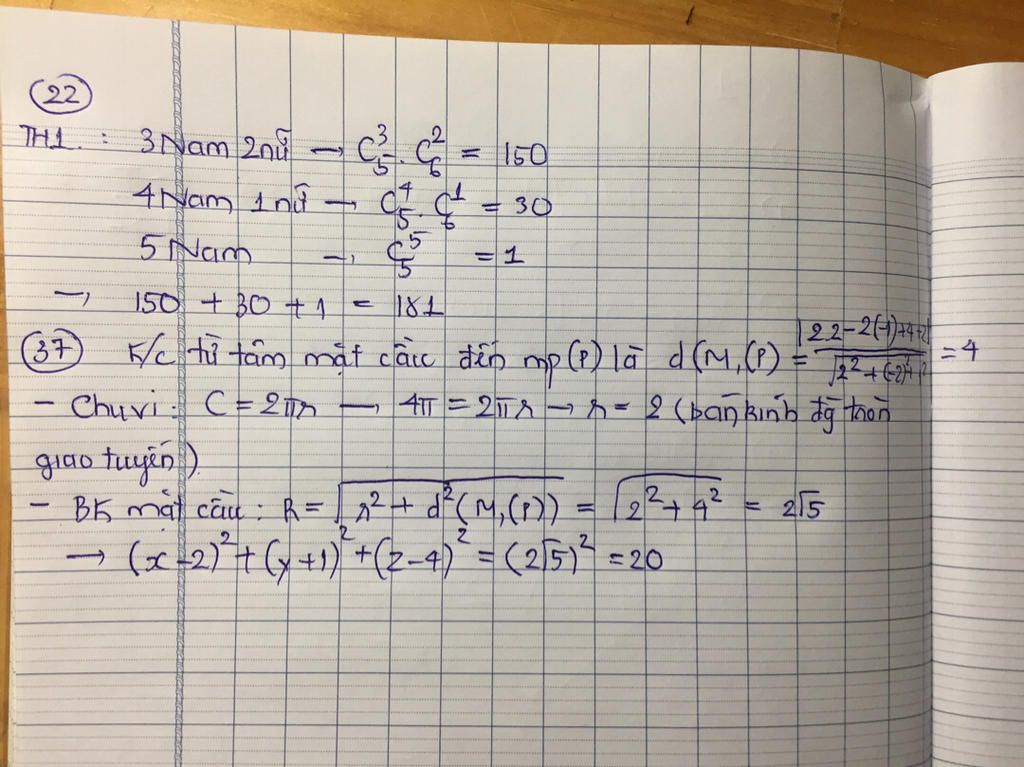 22
TH1 : 3 Nam 2 nữ → C₅³ . C₆² = 150
4 Nam 1 nữ → C₅⁴ . C₆¹ = 30
5 Nam → C₅⁵ = 1
→ 150 + 30 + 1 = 181
37 K/c từ tâm mặt cầu đến mp (P) là d(M,(P) = |2.2-2(-1)+4+2| / √2²+(-2)²+1² = 4
- Chu vi : C = 2πr → 4π = 2πr → r = 2 (bán kính đg tròn
giao tuyến)
- BK mặt cầu : R = √r² + d²(M,(P)) = √2² + 4² = 2√5
→ (x-2)² + (y+1)² + (z-4)² = (2√5)² = 20